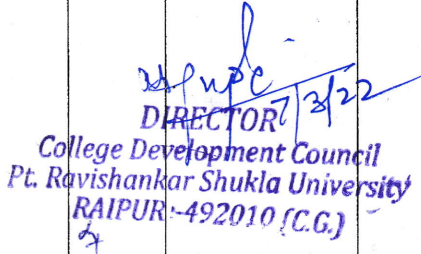 7/3/22
DIRECTOR
College Development Council
Pt. Ravishankar Shukla University
RAIPUR:-492010 (C.G.)